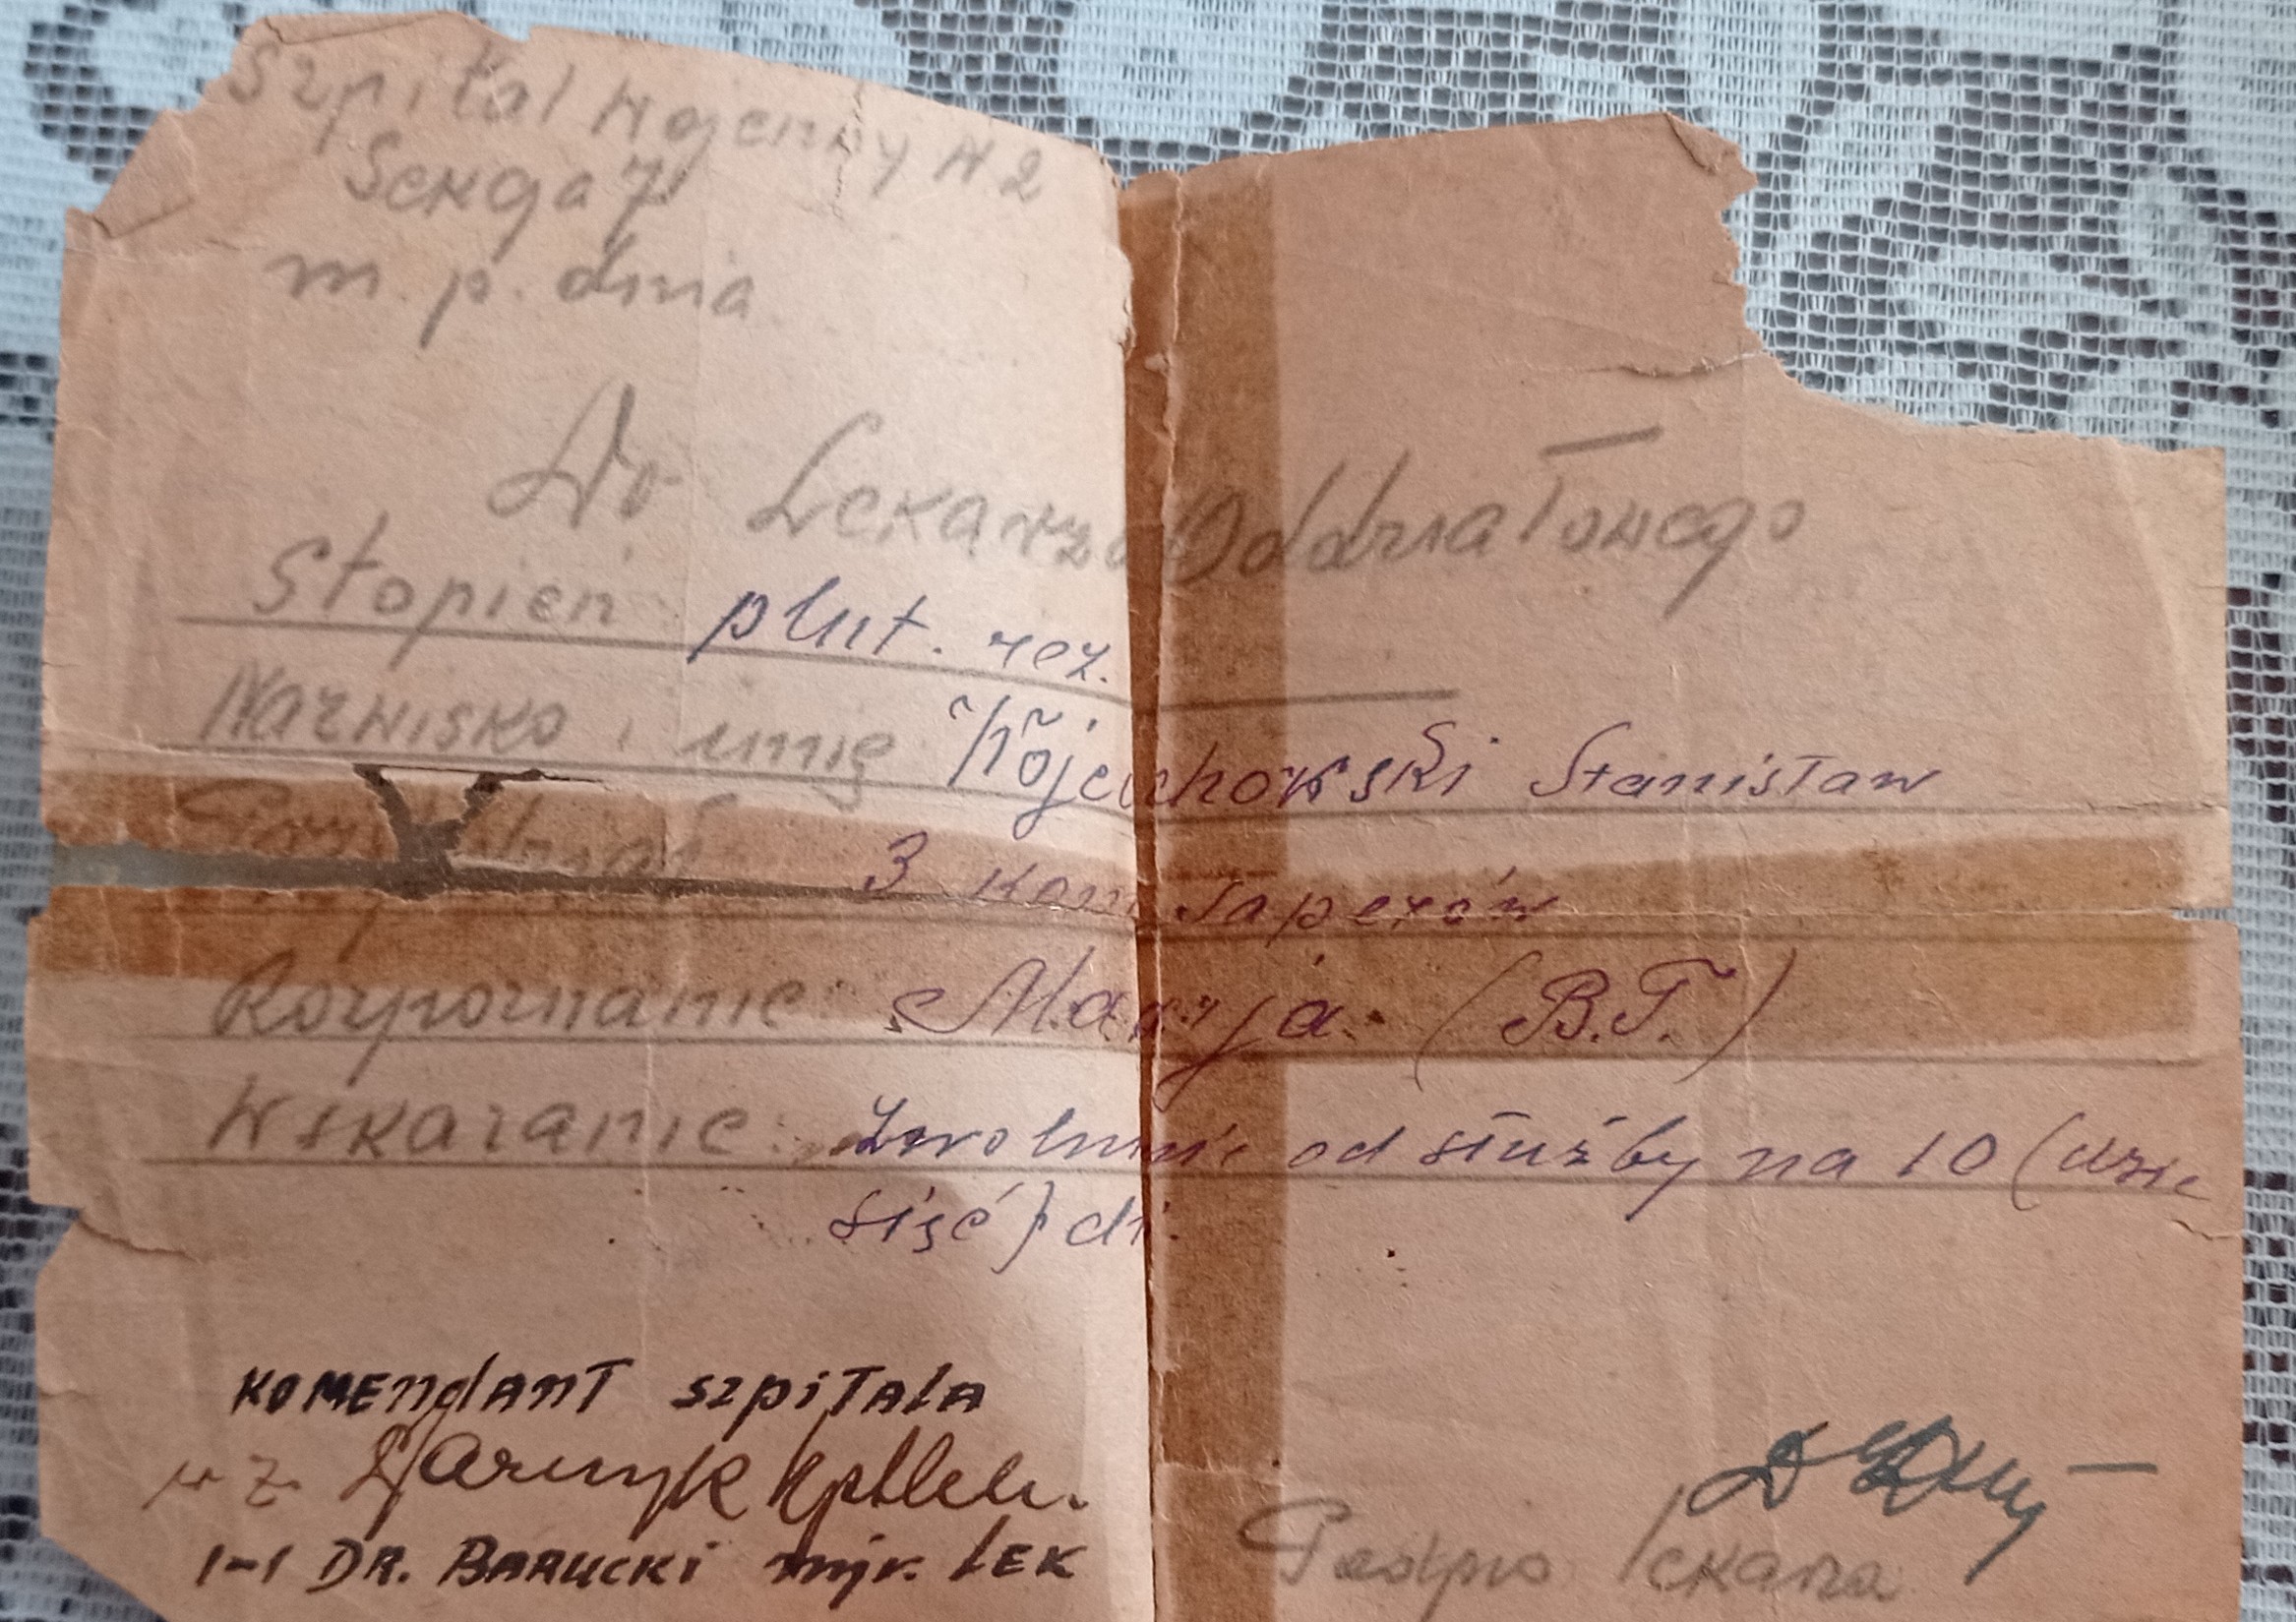 Szpital Wojenny N 2
Sengaj
m. p. dnia
Do Lekarza Oddziałowego
Stopień plut. rez.
Nazwisko i imię Wojciechowski Stanisław
3 Kom saperów
Rozpoznanie: Malarja. (B.T.)
Wskazanie: Zwolnienie od służby na 10 (dzie
sięć) dn
KOMENDANT SZPITALA
w z kpt lek.
1-1 DR. BARUCKI mjr. LEK
Podpis lekarza